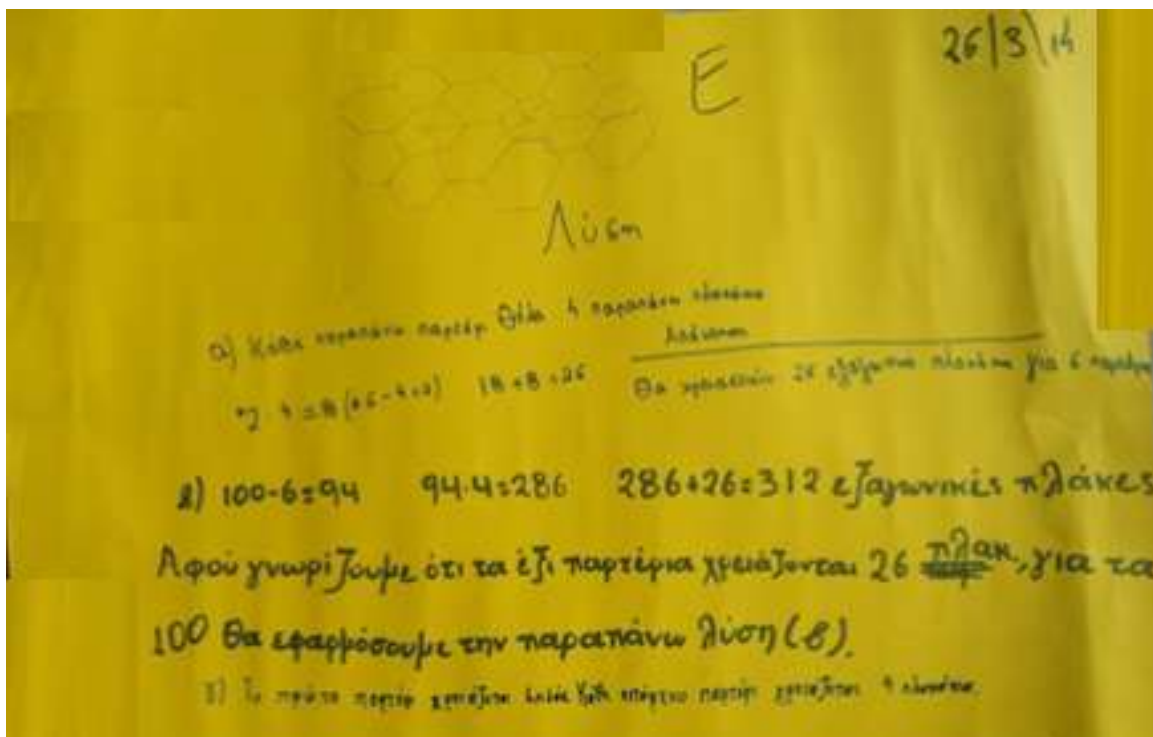 26|3|14
Ε
Λύση
α) Κάθε παραπάνω παρτέρι θέλει 4 παραπάνω πλακάκια
18+8=26
Θα χρειαστούν 26 εξαγωνικά πλακάκια για 6 παρτέρια
β) 100-6=94 94·4=286 286+26=312 εξαγωνικές πλάκες
Αφού γνωρίζουμε ότι τα έξι παρτέρια χρειάζονται 26 πλακ., για τα
100 θα εφαρμόσουμε την παραπάνω λύση (β).
Το πρώτο παρτέρι χρειάζεται κάθε επόμενο παρτέρι χρειάζεται 4 πλακάκια.